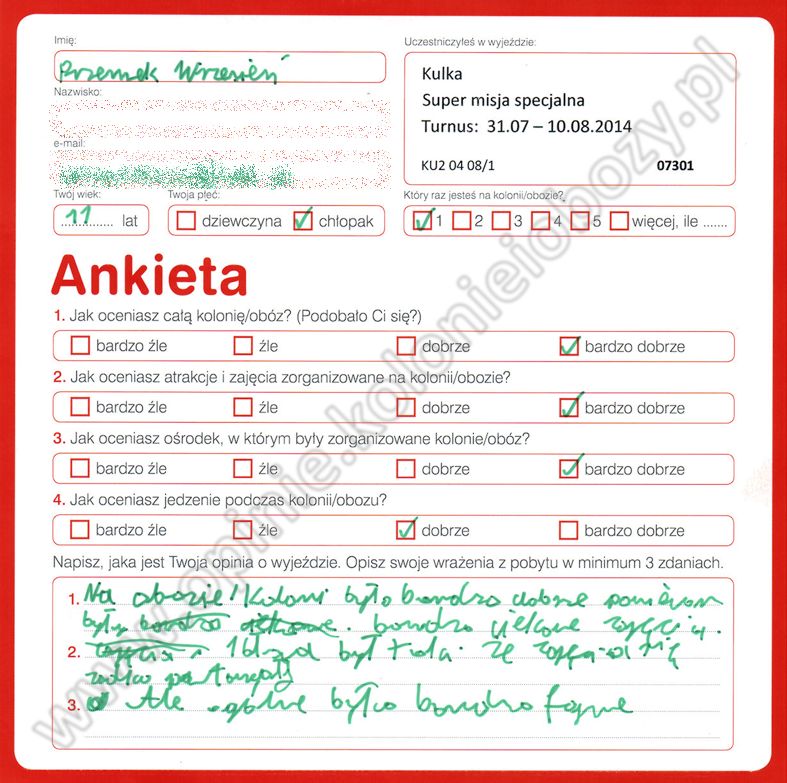 Imię:
Przemek Wrzesień
Nazwisko:
e-mail:
Twój wiek:
11 lat
Twoja płeć:
dziewczyna chłopak
Uczestniczyłeś w wyjeździe:
Kulka
Super misja specjalna
Turnus: 31.07 – 10.08.2014
KU2 04 08/1 07301
Który raz jesteś na kolonii/obozie?
1 2 3 4 5 więcej, ile .......
Ankieta
1. Jak oceniasz całą kolonię/obóz? (Podobało Ci się?)
bardzo źle źle dobrze bardzo dobrze
2. Jak oceniasz atrakcje i zajęcia zorganizowane na kolonii/obozie?
bardzo źle źle dobrze bardzo dobrze
3. Jak oceniasz ośrodek, w którym były zorganizowane kolonie/obóz?
bardzo źle źle dobrze bardzo dobrze
4. Jak oceniasz jedzenie podczas kolonii/obozu?
bardzo źle źle dobrze bardzo dobrze
Napisz, jaka jest Twoja opinia o wyjeździe. Opisz swoje wrażenia z pobytu w minimum 3 zdaniach.
1. Na obozie/Koloni było bardzo dobrze
były bardzo
2. 1 był że
3. Ale było bardzo fajne
www.opinie.kolonieiobozy.pl